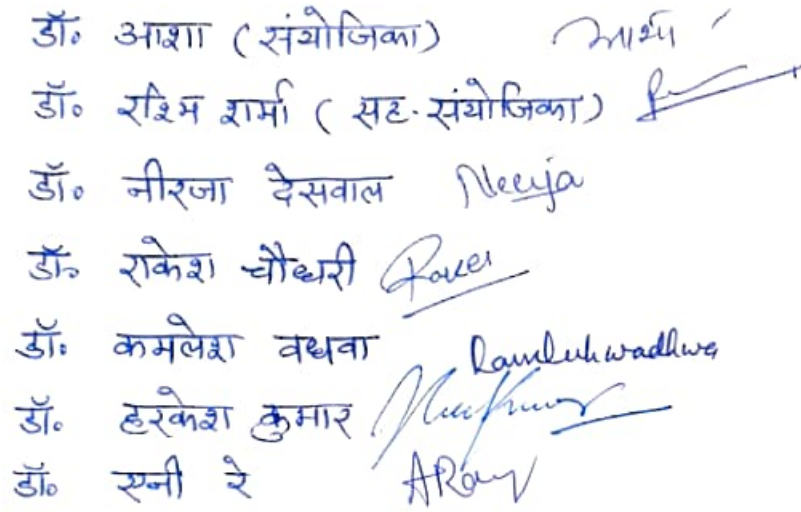 डॉ० आशा (संयोजिका) आशा
डॉ० रश्मि शर्मा ( सह-संयोजिका)
डॉ० नीरजा देसवाल Neerja
डॉ० राकेश चौधरी
डॉ० कमलेश वधवा Kamlesh wadhwa
डॉ० हरकेश कुमार
डॉ० एनी रे ARay